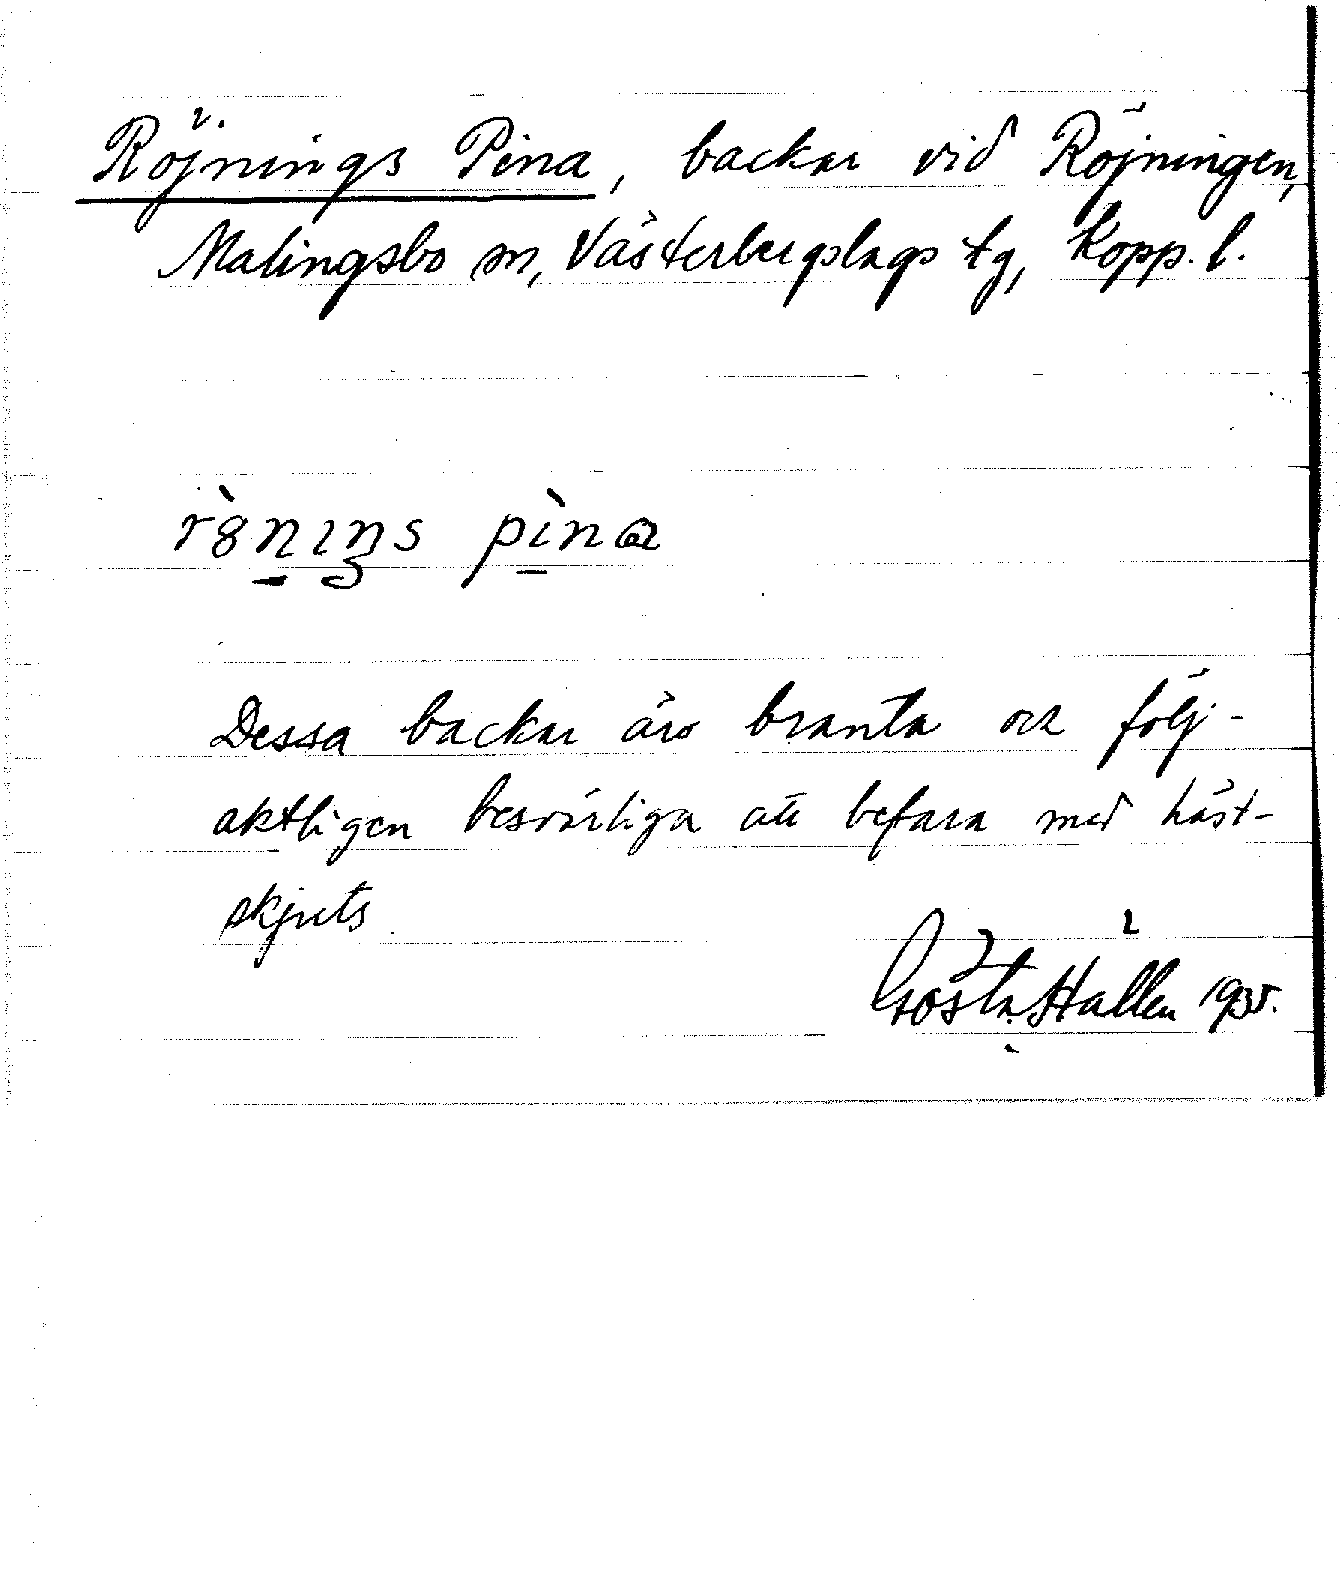 Röjnings Pina, backar vid Röjningen,
Malingsbo sn, Västerbergslags tg, Kopp. l.
pìna
Dessa backar äro branta och följ-
aktligen besvärliga att befara med häst-
skjuts.
Gösta Hallen 1935.